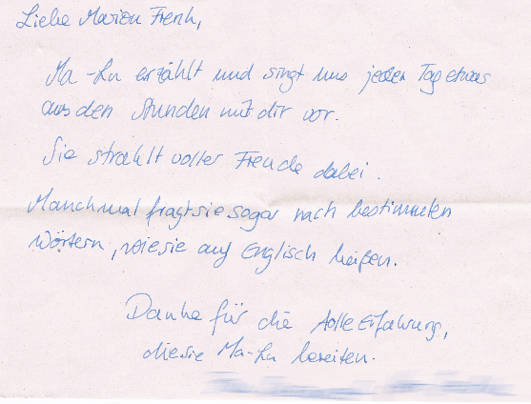 Liebe Marion Frenk,
Ma-Lu erzählt und singt uns jeden Tag etwas
aus den Stunden mit dir vor.
Sie strahlt voller Freude dabei.
Manchmal fragt sie sogar nach bestimmten
Wörtern, wie sie auf Englisch heißen.
Danke für die tolle Erfahrung,
die sie Ma-Lu bereiten.